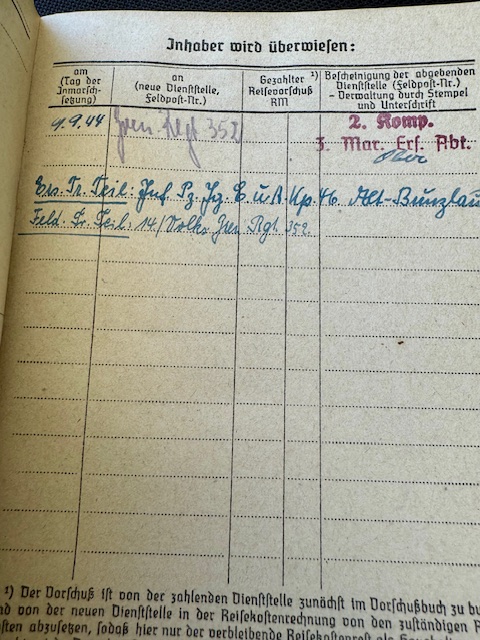 Inhaber wird überwiesen:
am
(Tag der
Inmarsch-
setzung)
an
(neue Dienststelle,
Feldpost-Nr.)
Gezahlter ¹)
Reisevorschuß
RM
Bescheinigung der abgebenden
Dienststelle (Feldpost-Nr.)
- Verwaltung durch Stempel
und Unterschrift
9.9.44 Gren Regt 352
2. Komp.
3. Mar. Ers. Abt.
Ers. Tr. Teil: Inf. Pz. Jg. E. u. A. Kp. 46 Alt-Bunzlau
Feld. Tr. Teil. 14/Volks Gren Rgt. 352.
¹) Der Vorschuß ist von der zahlenden Dienststelle zunächst im Vorschußbuch zu bu
nd von der neuen Dienststelle in der Reisekostenrechnung von den zuständigen R
sten abzusetzen, sodaß hier nur der verbleibende Reisekostenrest als